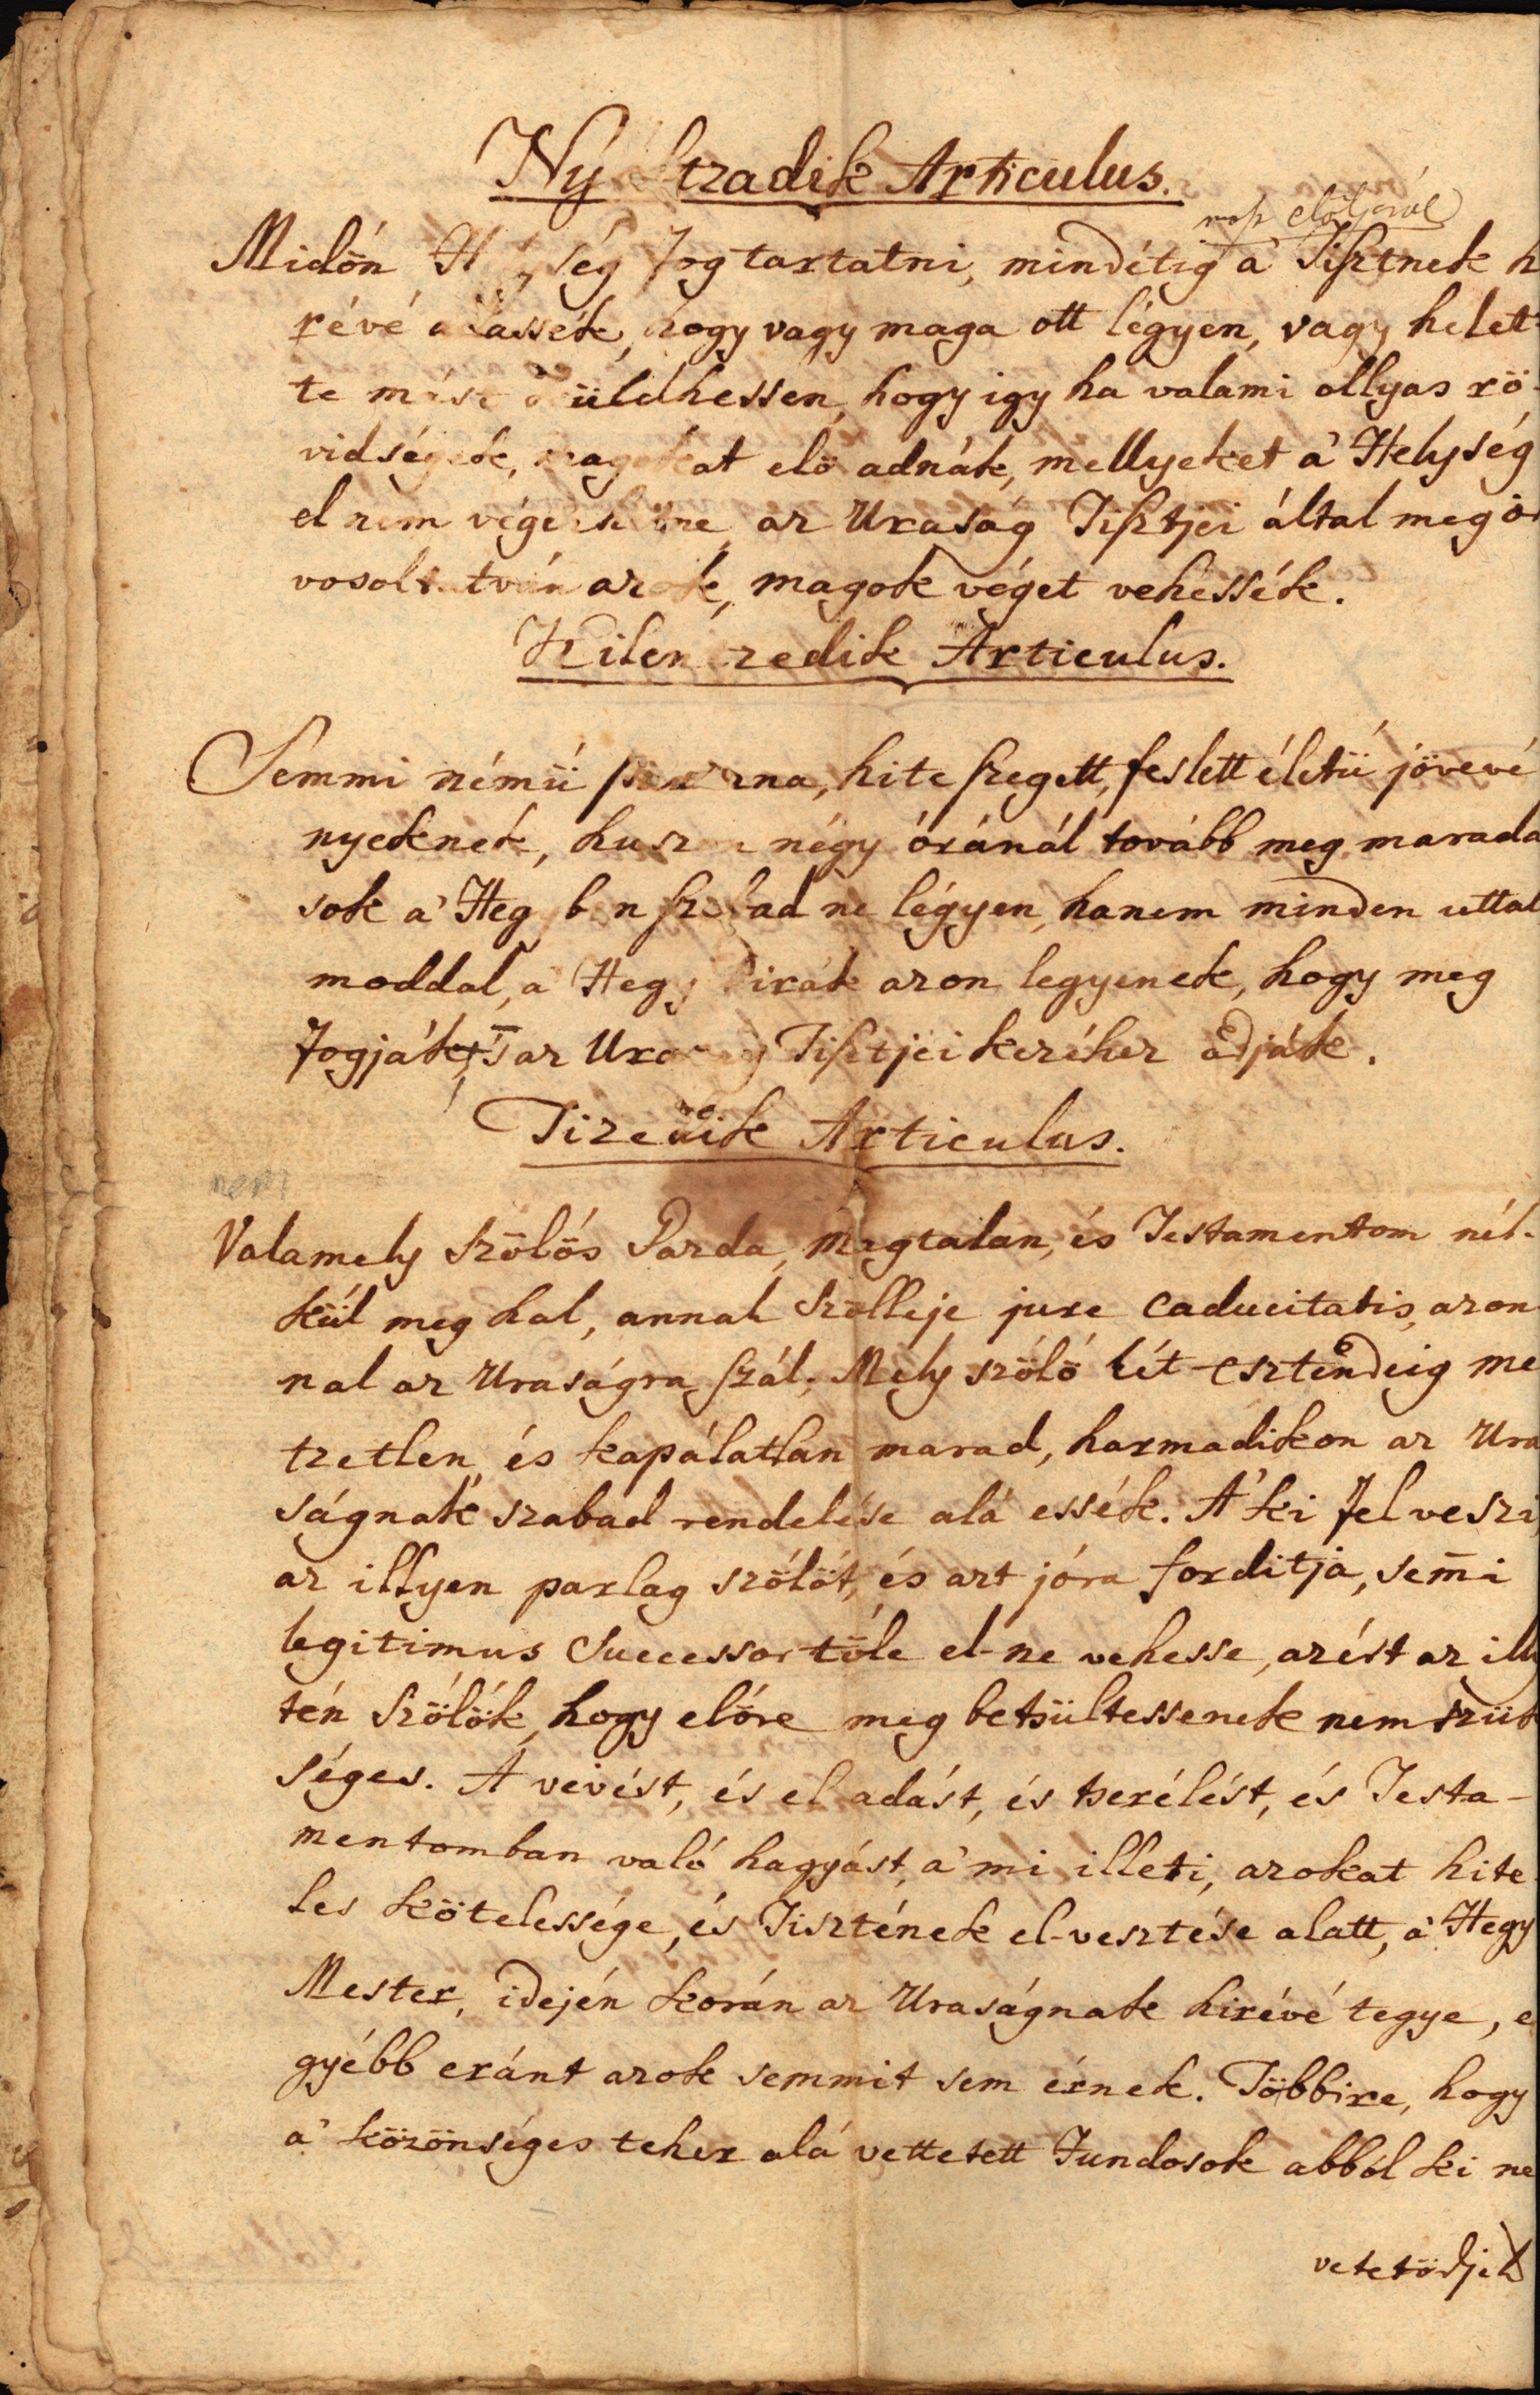 Ny tzadik Articulus.
nap elöljárúl
Midőn H ség fog tartatni, mindétig a' Tisztnek h
révé adassék, hogy vagy maga ott légyen, vagy helet
te mást küldhessen, hogy igy ha valami ollyas rö-
vidségek, magokat elö adnák, mellyeket a' Helység
el nem végezhetne, az Uraság Tisztjei által meg or
vosoltatván azok, magok véget vehessék.
Kilentzedik Articulus.
Semmi némü párázna, hite szegett, feslett életü jövevé
nyeknek, huszon négy óránál tovább meg marada
sok a' Hegyben szabad ne légyen, hanem minden uttal
moddal, a' Hegy Birák azon legyenek, hogy meg
fogják, 's az Uraság Tisztjei kezéhez adják.
Tizedik Articulus.
nem
Valamely Szölös Gazda, magtalan, és Testamentom nél-
kül meg hal, annak Szölleje jure caducitatis, azon
nal az Uraságra szál; Mely szölö két-esztendeig me
tzetlen, és kapálatlan marad, harmadikon az Ura
ságnak szabad rendelése alá essék. A' ki fel veszi
az illyen parlag szölöt, és azt jóra forditja, sem̄i
legitimus Successor töle el-ne vehesse, azért az illy
tén Szölök, hogy elöre meg betsültessenek nem szük
séges. A vevést, és el adást, és tserélést, és Testa-
mentomban való hagyást, a' mi illeti, azokat hite
les kötelessége, és Tisztének el-vesztése alatt, a' Hegy
Mester, idején korán az Uraságnak hirévé tegye, e
gyébb eránt azok semmit sem érnek. Többire, hogy
a' közönséges teher alá vettetett Fundosok abból ki ne
vetetödjék